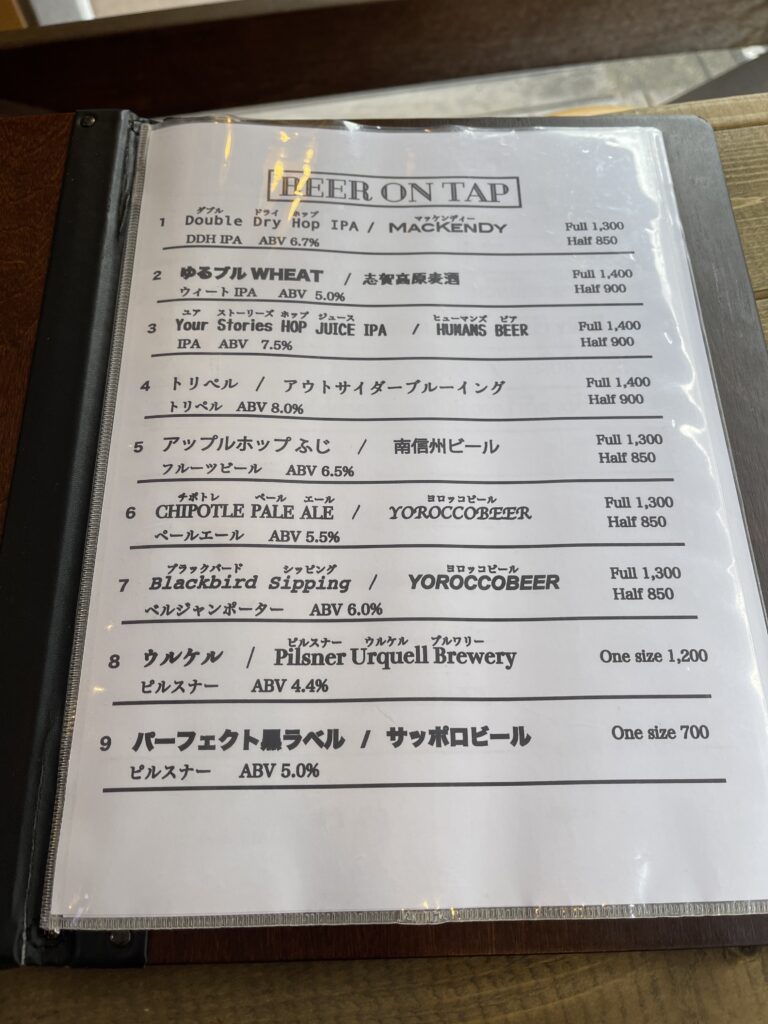 BEER ON TAP
ダブル ドライ ホップ マッケンディー
1 Double Dry Hop IPA / MACKENDY Full 1,300
DDH IPA ABV 6.7% Half 850
2 ゆるブル WHEAT / 志賀高原麦酒 Full 1,400
ウィート IPA ABV 5.0% Half 900
ユア ストーリーズ ホップ ジュース ヒューマンズ ビア
3 Your Stories HOP JUICE IPA / HUMANS BEER Full 1,400
IPA ABV 7.5% Half 900
4 トリペル / アウトサイダーブルーイング Full 1,400
トリペル ABV 8.0% Half 900
5 アップルホップ ふじ / 南信州ビール Full 1,300
フルーツビール ABV 6.5% Half 850
チポトレ ペール エール ヨロッコビール
6 CHIPOTLE PALE ALE / YOROCCOBEER Full 1,300
ペールエール ABV 5.5% Half 850
ブラックバード シッピング ヨロッコビール
7 Blackbird Sipping / YOROCCOBEER Full 1,300
ベルジャンポーター ABV 6.0% Half 850
ピルスナー ウルケル ブルワリー
8 ウルケル / Pilsner Urquell Brewery One size 1,200
ピルスナー ABV 4.4%
9 パーフェクト黒ラベル / サッポロビール One size 700
ピルスナー ABV 5.0%